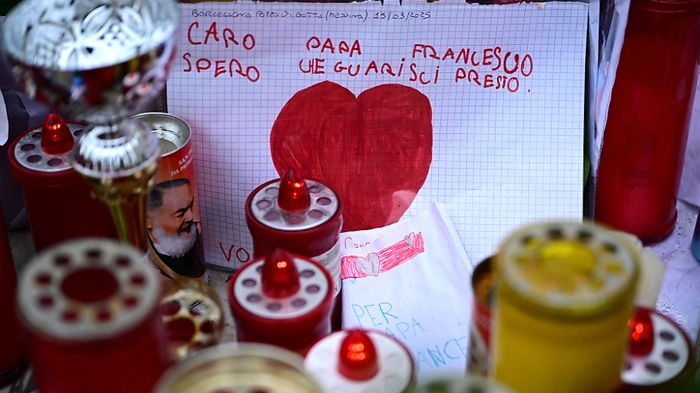 BARCELLONA POZZO DI GOTTO (MESSINA) 15/03/2025
CARO PAPA FRANCESCO
SPERO CHE GUARISCI PRESTO.
VO
PER
APA
ANCE